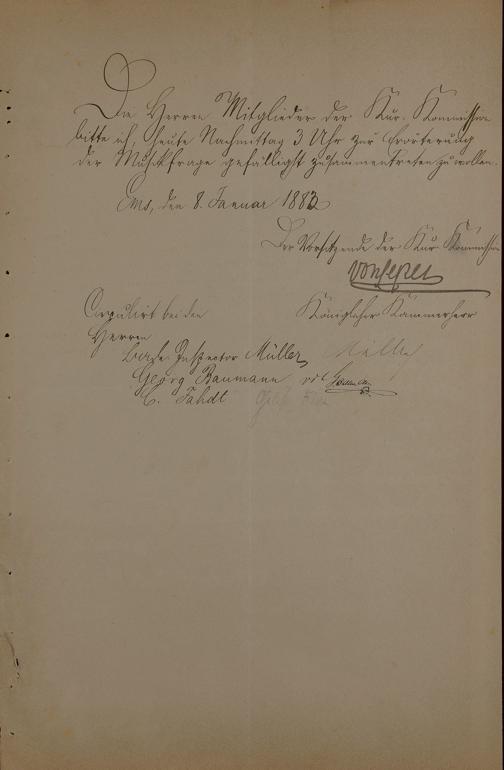 Die Herren Mitglieder der Kur-Kommission
bitte ich, heute Nachmittag 3 Uhr zur Erörterung
der Musikfrage gefälligst zusammentreten zu wollen.
Ems, den 8. Januar 1883
Der Vorsitzende der Kur-Kommission
Königlicher Kammerherr
Cirkulirt bei den
Herren
Bade-Inspector Müller Müller
Georg Baumann vdt Baumann
C. Fahdt